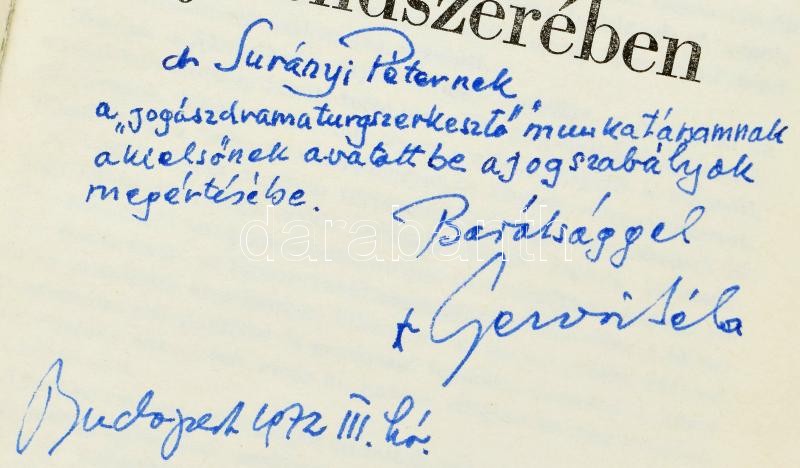 rendszerében
dr Surányi Péternek
a „jogászdramaturgszerkesztő" munkatársamnak
aki elsőnek avatott be a jogszabályok
megértésébe.
Barátsággel
darabanth
Béla
Budapest 1972 III. hó.